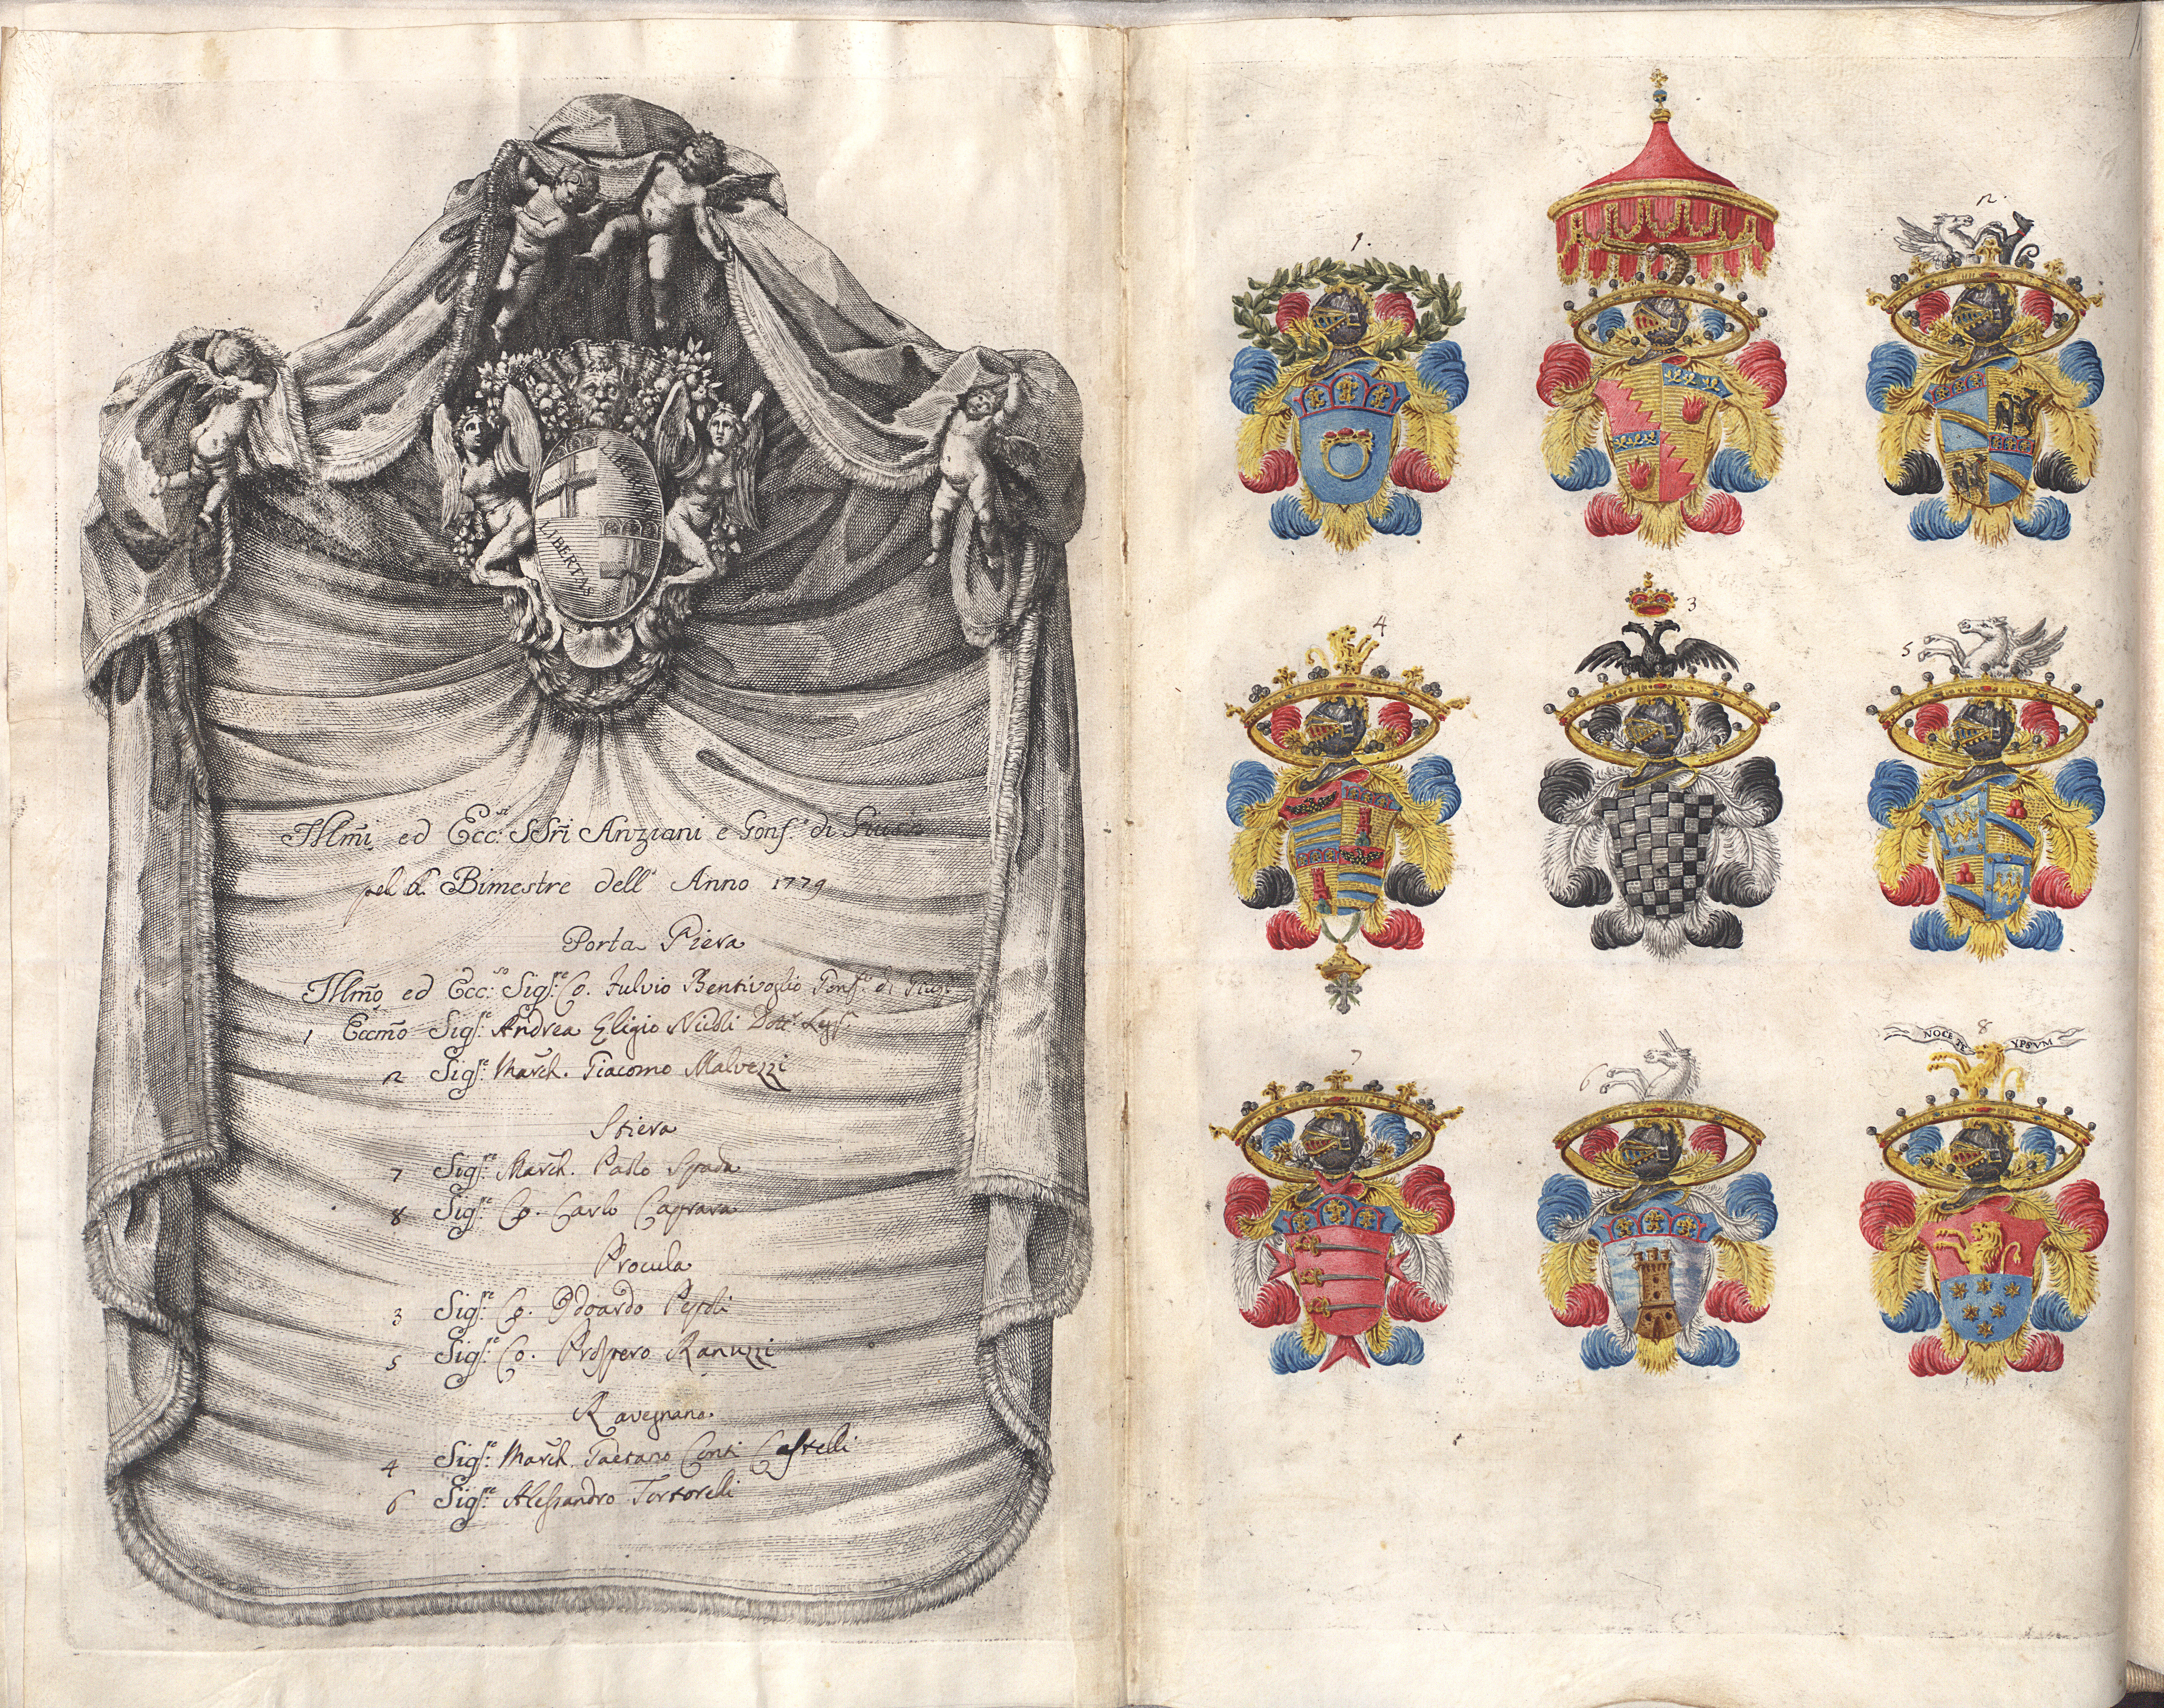 LIBERTAS
LIBERTAS
Illm̃i ed Ecc.si SSri Anziani e Gonf.e di Giust.a
pel 6.
Bimestre dell' Anno 1779
Porta Piera
Illm̃o ed Ecc.so Sig.re Co. Fulvio Bentivoglio Gonf.e di Giust.
1 Eccm̃o Sig.re Andrea Eligio Nicoli Dott.r Legs.
2 Sig.re March. Giacomo Malvezzi
Stiera
7 Sig.re March. Paolo Spada
8 Sig.re Co. Carlo Caprara
Procula
3 Sig.re Co. Odoardo Pepoli
5 Sig.re Co. Prospero Ranuzzi
Ravegnana
4 Sig.re March. Gaetano Conti Castelli
6 Sig.re Alessandro Tortorelli
1.
2.
4
3
5
7
6
8
NOCE TE YPSVM